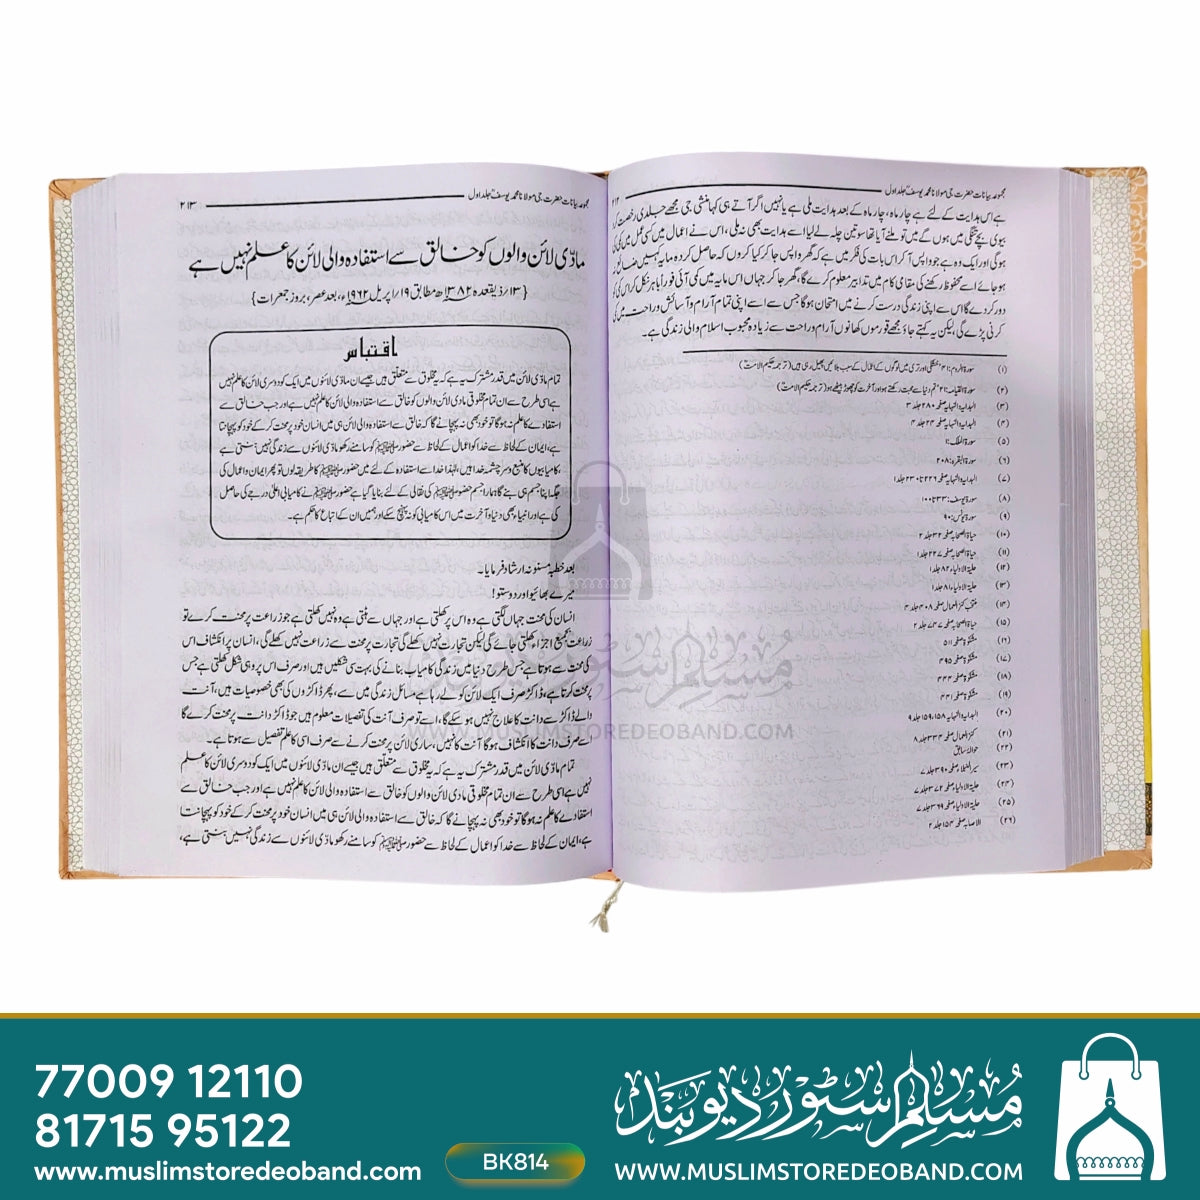 مجموعہ بیانات حضرت جی مولانا محمد یوسفؒ جلد اول
ہے اس ہدایت کے لئے ہے چار ماہ، چار ماہ کے بعد ہدایت ملی ہے یا نہیں اگر آتے ہی کہا منشی جی مجھے جلدی رخصت
بیوی بچے تنگی میں ہوں گے میں تو ملنے آیا تھا سو تین چلے لے لیا اسے ہدایت بھی نہ ملی، اس نے اعمال میں کسی عمل میں کمی کی
ہوگی اور ایک وہ ہے جو واپس آکر اس بات کی فکر میں ہے کہ گھر واپس جا کر کیا کروں کہ حاصل کردہ مایہ کہیں ضائع
ہو جائے اسے محفوظ رکھنے کی مقامی کام میں تدابیر معلوم کرے گا، گھر جا کر جہاں اس مایہ میں کمی آئی فوراً باہر نکل کر اس کمی کو
دور کردے گا اس سے اپنی زندگی درست کرنے میں امتحان ہوگا جس سے اسے اپنی تمام آرام و آسائش و راحت میں کمی
کرنی پڑے گی لیکن یہ کہتے جاؤ مجھے قورموں کھانوں آرام و راحت سے زیادہ محبوب اسلام والی زندگی ہے۔
(۱) سورۃ الروم:۴۱ خشکی اور تری میں لوگوں کے اعمال کے سبب بلائیں پھیل رہی ہیں (ترجمہ حکیم الامتؒ)
(۲) سورۃ القیامۃ:۲۱ تم دنیا سے محبت رکھتے ہو اور آخرت کو چھوڑ بیٹھے ہو (ترجمہ حکیم الامتؒ)
(۳) البدایہ والنہایہ صفحہ ۲۸۰ جلد ۳
(۴) البدایہ والنہایہ صفحہ ۲۳ جلد ۴
(۵) سورۃ الملک:۱
(۶) سورۃ البقرہ:۲۰۸
(۷) البدایہ والنہایہ صفحہ ۲۲۶ تا ۲۳۰ جلد ۱
(۸) سورۃ یوسف:۳۳ تا ۱۰۰
(۹) سورۃ یونس:۹۰
(۱۰) حیاۃ الصحابہ صفحہ ۳۲ جلد ۲
(۱۱) حیاۃ الصحابہ صفحہ ۲۲۷ جلد ۱
(۱۲) حلیۃ الاولیاء ۸۲ جلد ۱
(۱۳) حلیۃ الاولیاء ۸۱ جلد ۱
(۱۴) منتخب کنز العمال صفحہ ۴۰۸ جلد ۴
(۱۵) حیاۃ الصحابہ صفحہ ۷۴۷ جلد ۲
(۱۶) مشکوٰۃ صفحہ ۵۱۱
(۱۷) مشکوٰۃ صفحہ ۴۹۵
(۱۸) مشکوٰۃ صفحہ ۴۴۴
(۱۹) مشکوٰۃ صفحہ ۴۴۱
(۲۰) البدایہ والنہایہ ۱۵۸، ۱۵۹ جلد ۹
(۲۱) کنز العمال صفحہ ۳۳۴ جلد ۸
(۲۲) حوالہ سابق
(۲۳) سیر النبلاء صفحہ ۳۹۰ جلد ۷
(۲۴) حلیۃ الاولیاء صفحہ ۳۷۲ جلد ۷
(۲۵) حلیۃ الاولیاء صفحہ ۳۶۹ جلد ۷
(۲۶) الاصابہ صفحہ ۱۵۳ جلد ۲
مجموعہ بیانات حضرت جی مولانا محمد یوسفؒ جلد اول ۲۱۳
مادّی لائن والوں کو خالق سے استفادہ والی لائن کا علم نہیں ہے
{۱۳ ذیقعدہ ۱۳۸۲ھ مطابق ۱۹ اپریل ۱۹۶۲ء، بعد عصر، بروز جمعرات}
اقتباس
تمام مادّی لائن میں قدر مشترک یہ ہے کہ یہ مخلوق سے متعلق ہیں جیسے ان مادّی لائنوں میں ایک کو دوسری لائن کا علم نہیں
ہے اسی طرح سے ان تمام مخلوقی مادی لائن والوں کو خالق سے استفادہ والی لائن کا علم نہیں ہے اور جب خالق سے
استفادے کا علم نہ ہوگا تو خود بھی نہ پہچانے گا کہ خالق سے استفادہ والی لائن ہی میں انسان خود پر محنت کرکے خود کو پہچانتا
ہے، ایمان کے لحاظ سے خدا کو اعمال کے لحاظ سے حضور ﷺ کو سامنے رکھو مادّی لائنوں سے زندگی نہیں بنتی ہے
، کامیابیوں کا منبع و سرچشمہ خدا ہیں، لہٰذا خدا سے استفادہ کے لئے میں حضور ﷺ کا طریقہ لوں تو پھر ایمان و اعمال کی
جگہ اپنا جسم ہی بنے گا ہمارا جسم حضور ﷺ کی نقالی کے لئے بنایا گیا ہے حضور ﷺ نے کامیابی اعلیٰ درجے کی حاصل
کی ہے اور انبیاء بھی دنیا و آخرت میں اس کامیابی کو نہ پہنچ سکے اور ہمیں ان کے اتباع کا حکم ہے۔
بعد خطبہ مسنونہ ارشاد فرمایا۔
میرے بھائیو اور دوستو!
انسان کی محنت جہاں لگتی ہے وہ اس پر کھلتی ہے اور جہاں سے ہٹتی ہے وہ نہیں کھلتی ہے جو زراعت پر محنت کرے تو
زراعت بجمیع اجزاءٍ کھلتی جائے گی لیکن تجارت نہیں کھلے گی تجارت پر محنت سے زراعت نہیں کھلے گی، انسان پر انکشاف اس
کی محنت سے ہوتا ہے جس طرح دنیا میں زندگی کا میاب بنانے کی بہت سی شکلیں ہیں اور صرف اس پر وہی شکل کھلتی ہے جس
پر محنت کرتا ہے، ڈاکٹر صرف ایک لائن کو لے رہا ہے مسائل زندگی میں سے، پھر ڈاکٹروں کی بھی خصوصیات ہیں، آنت
والے ڈاکٹر سے دانت کا علاج نہیں ہو سکے گا، اسے تو صرف آنت کی تفصیلات معلوم ہیں جو ڈاکٹر دانت پر محنت کرے گا
اسے صرف دانت کا انکشاف ہوگا آنت کا نہیں، ساری لائن پر محنت کرنے سے صرف اسی کا علم تفصیل سے ہوتا ہے۔
تمام مادّی لائن میں قدر مشترک یہ ہے کہ یہ مخلوق سے متعلق ہیں جیسے ان مادّی لائنوں میں ایک کو دوسری لائن کا علم
نہیں ہے اسی طرح سے ان تمام مخلوقی مادی لائن والوں کو خالق سے استفادہ والی لائن کا علم نہیں ہے اور جب خالق سے
استفادے کا علم نہ ہوگا تو خود بھی نہ پہچانے گا کہ خالق سے استفادہ والی لائن ہی میں انسان خود پر محنت کرکے خود کو پہچانتا
ہے، ایمان کے لحاظ سے خدا کو اعمال کے لحاظ سے حضور ﷺ کو سامنے رکھو مادّی لائنوں سے زندگی نہیں بنتی ہے،
مسلم سٹور دیوبند
WWW.MUSLIMSTOREDEOBAND.COM
77009 12110
81715 95122
www.muslimstoredeoband.com
BK814
مسلم سٹور دیوبند
WWW.MUSLIMSTOREDEOBAND.COM